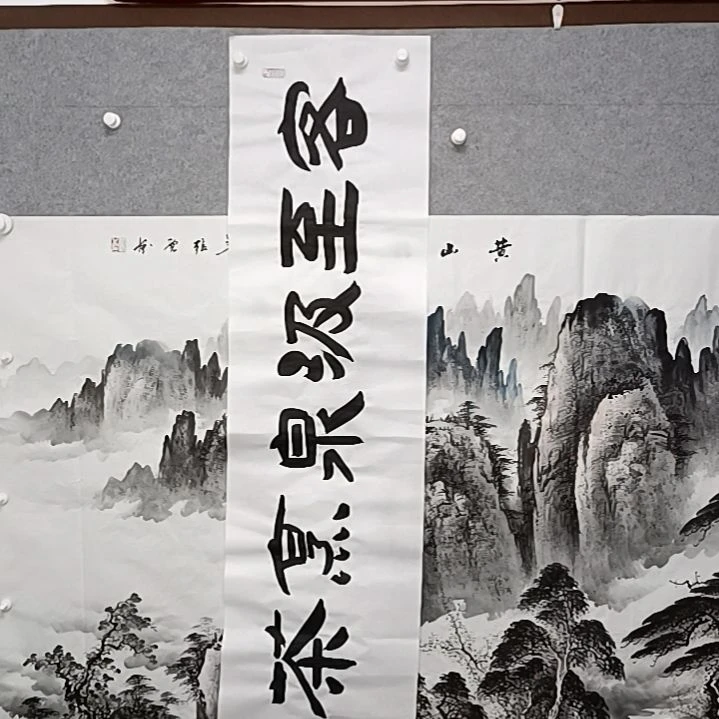 客至汲泉烹茶
黄山